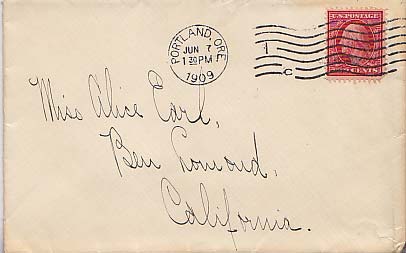 PORTLAND, ORE
JUN 7
1 30 PM
1909
1
C
U.S. POSTAGE
CENTS
Miss Alice Earl,
Ben Lomond,
California.